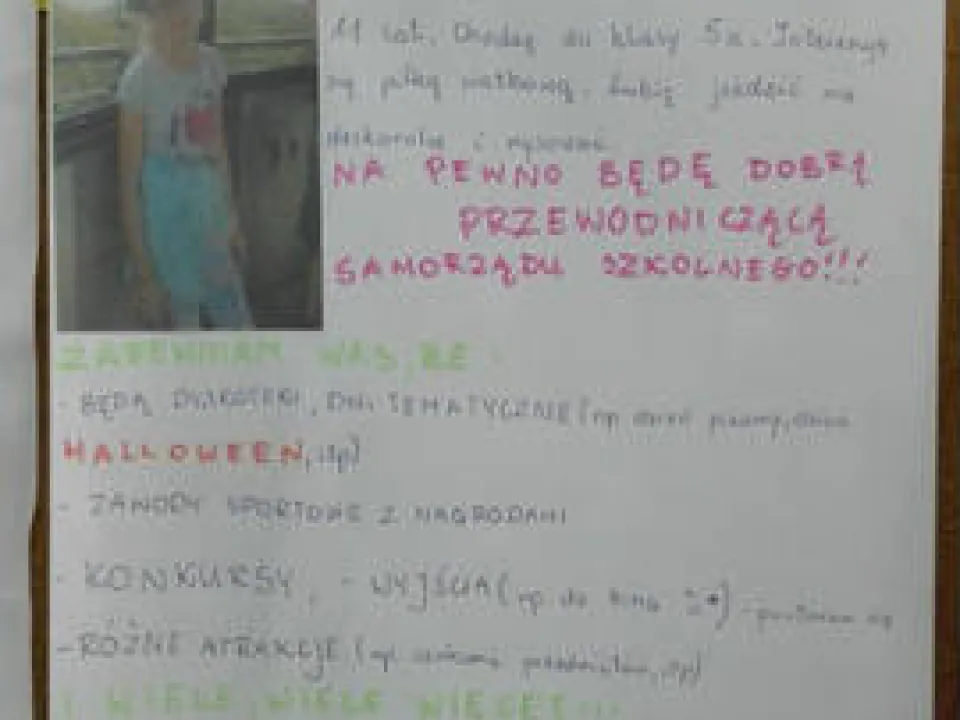 11 lat. Chodzę do klasy 5a. Interesuję
się piłką nożną. Lubię jeździć na
deskorolce i rysować.
NA PEWNO BĘDĘ DOBRĄ
PRZEWODNICZĄCĄ
SAMORZĄDU SZKOLNEGO!!!
ZAPEWNIAM WAS, ŻE:
- BĘDĄ DYSKOTEKI, DNI TEMATYCZNE (np dzień
HALLOWEEN, itp)
- ZAWODY SPORTOWE Z NAGRODAMI
- KONKURSY, - WYJŚCIA (np. do kina) - postaram się
- RÓŻNE ATRAKCJE (np. itp)
I WIELE, WIELE WIĘCEJ!!!